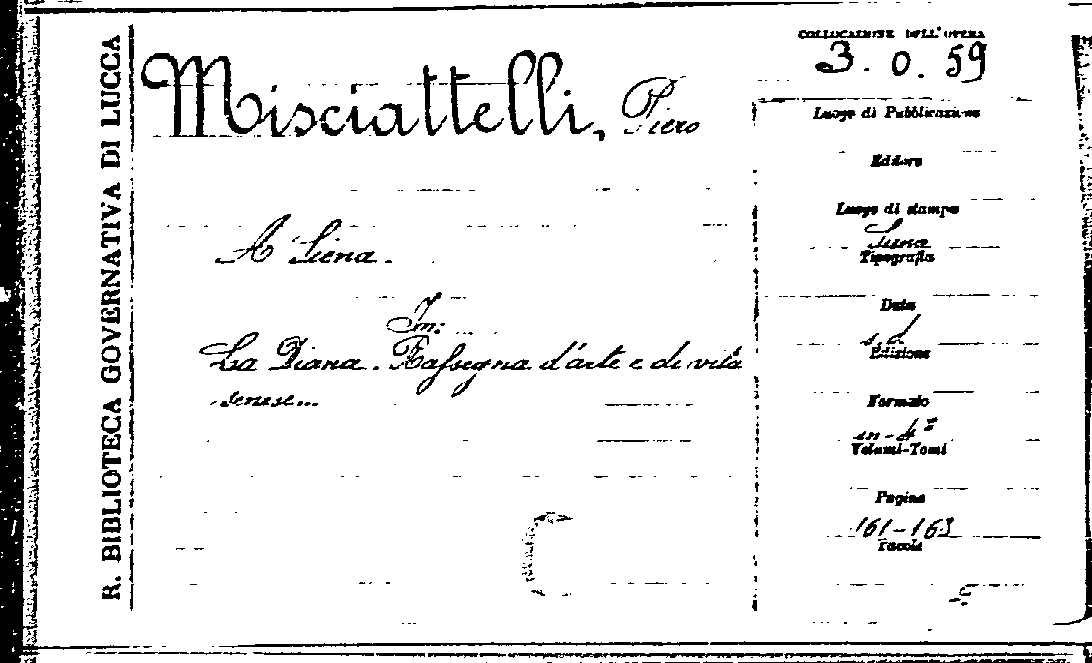 R. BIBLIOTECA GOVERNATIVA DI LUCCA
Misciattelli, Piero
A Siena.
In:
La Diana. Rassegna d'arte e di vita
senese...
COLLOCAZIONE DELL'OPERA
3. 0. 59
Luogo di Pubblicazione
Editore
Luogo di stampa
Siena
Tipografia
Data
s.d
Edizione
Formato
in-4º
Volumi-Tomi
Pagine
161-163
Tavole